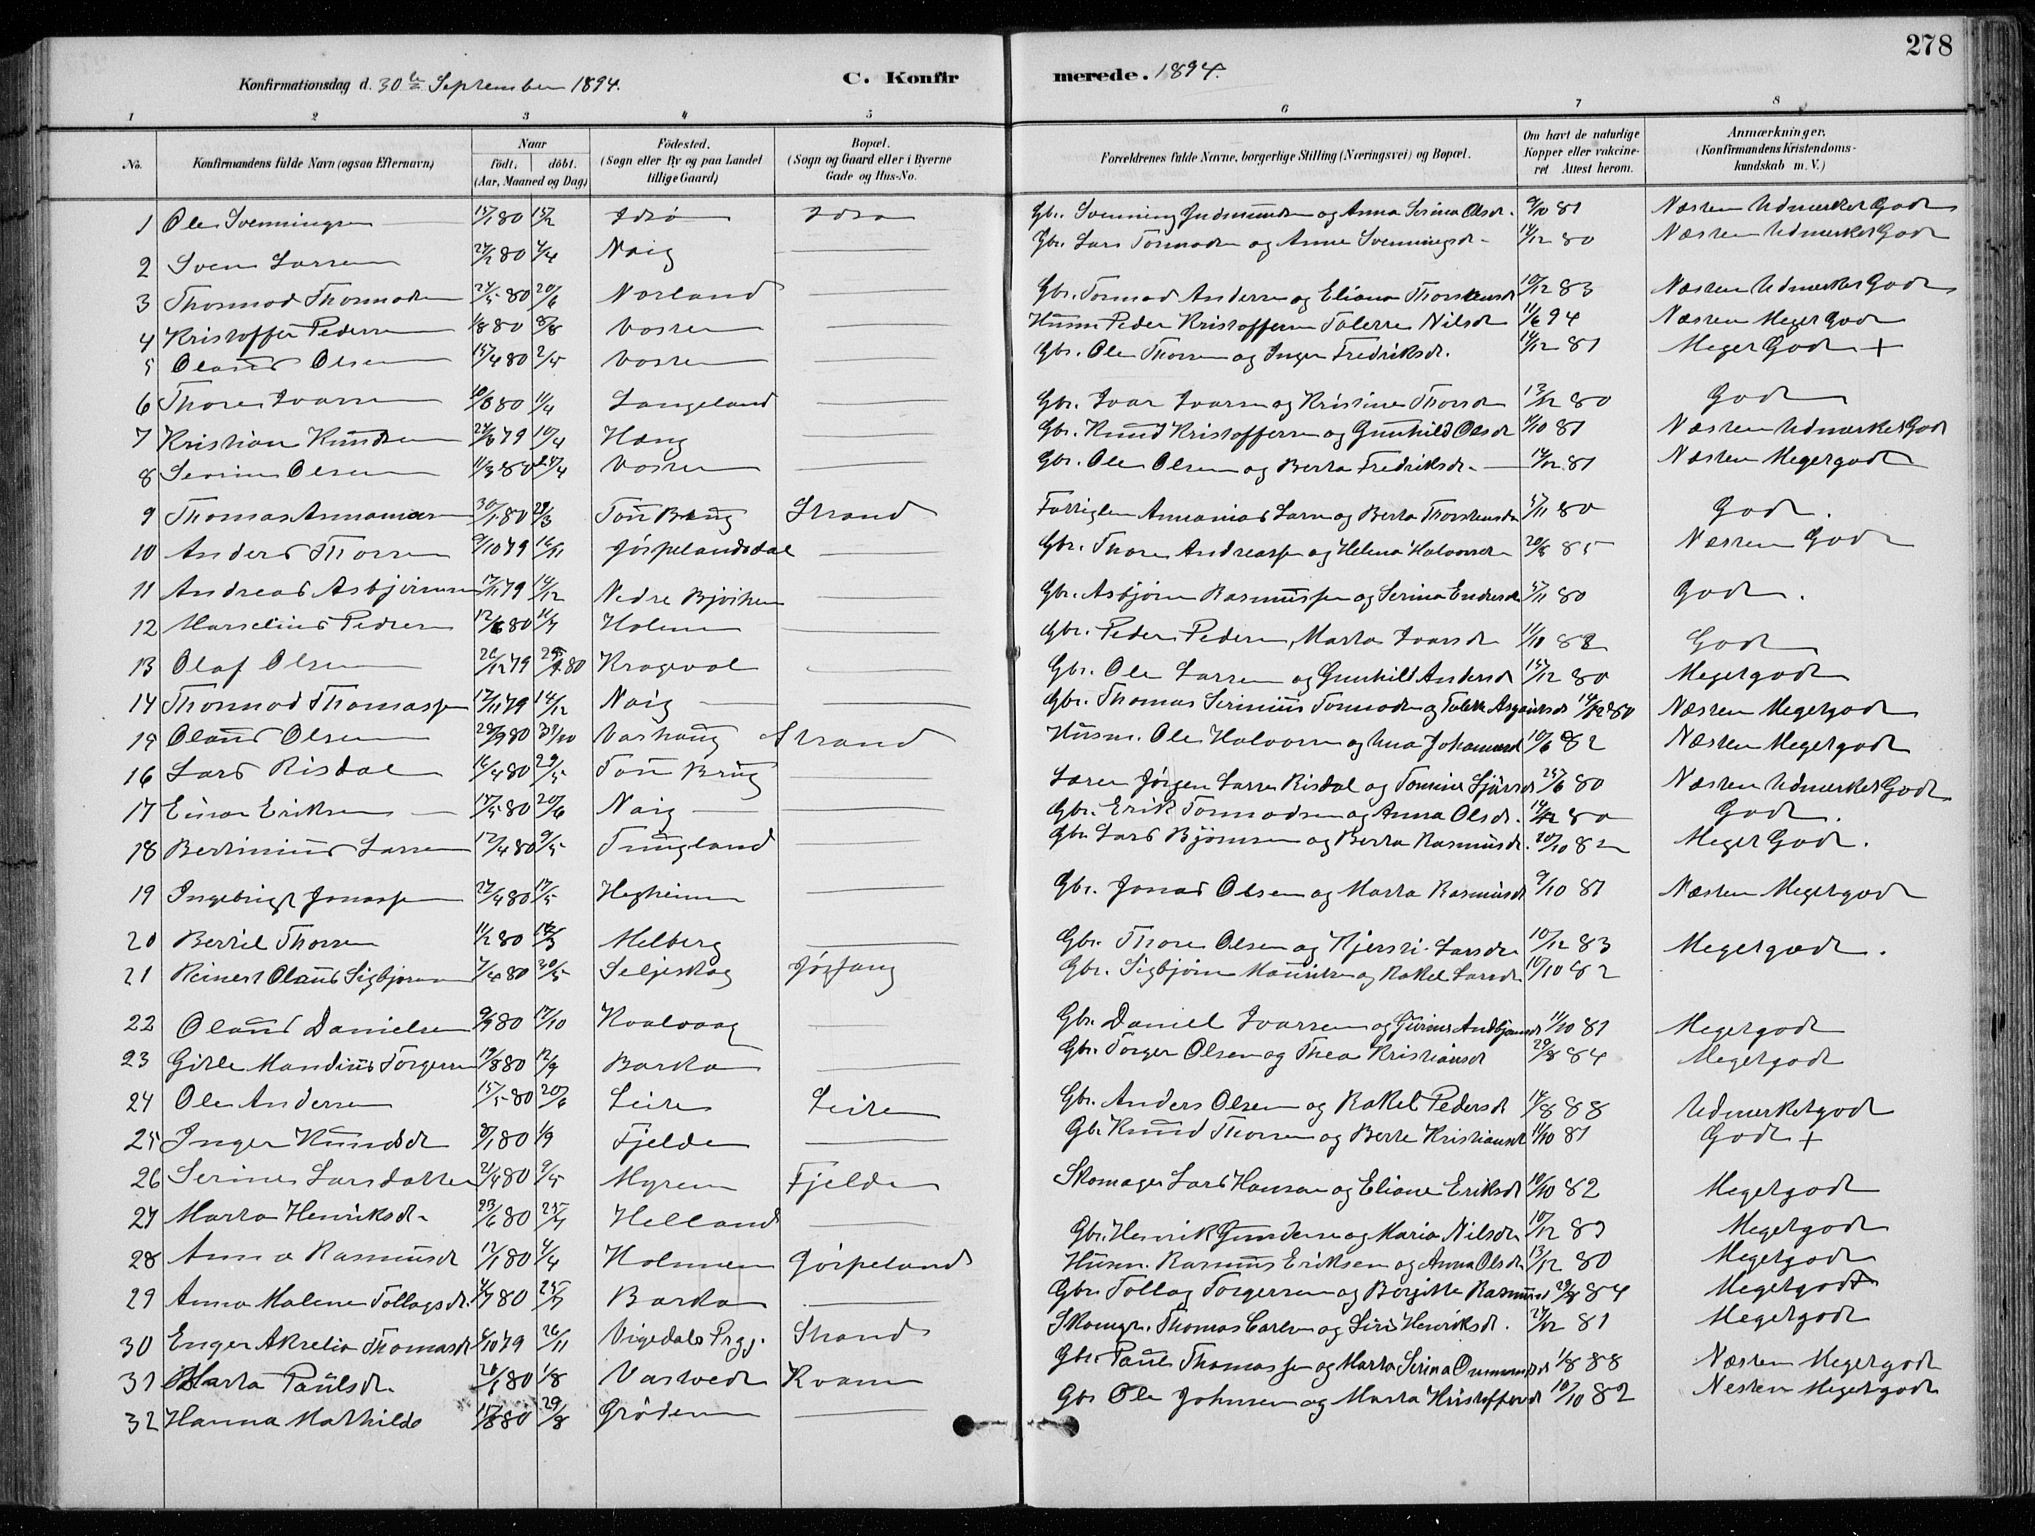 278
Konfirmationsdag d. 30te September 1894.
C. Konfir merede. 1894.
1 2 3 4 5 6 7 8
No. Konfirmandens fulde Navn (ogsaa Efternavn) Naar födt, döbt. (Aar, Maaned og Dag) Födested. (Sogn eller By og paa Landet tillige Gaard) Bopæl. (Sogn og Gaard eller i Byerne Gade og Hus-No. Forældrenes fulde Navne, borgerlige Stilling (Næringsvei) og Bopæl. Om havt de naturlige Kopper eller vakcineret Attest herom. Anmærkninger, (Konfirmandens Kristendomskundskab m. V.)
1 Ole Svenningsen 15/1 80 15/2 Idsø Idsø Gbr. Svenning Gudmundsen og Anna Serina Olsdr. 9/10 81 Næsten Udmerket Godt
2 Sven Larsen 24/2 80 4/4 Naig Gbr. Lars Tormodsen og Anne Svenningsdr. 14/12 80 Næsten Udmerket Godt
3 Thormod Thormodsen 24/5 80 20/6 Norland Gbr. Tormod Andersen og Eliana Thorstensdr 10/12 83 Næsten Udmerket Godt
4 Kristoffer Pedersen 1/8 80 8/8 Vostren Husm Peder Kristoffersen Talette Nilsdr 11/6 94 Næsten Meget Godt
5 Olaus Olsen 15/4 80 2/5 Vostren Gbr. Ole Thorsen og Inger Fredriksdr. 14/12 81 Meget Godt +
6 Thore Ivarsen 10/3 80 11/4 Langeland Gbr. Ivar Ivarsen og Kristine Thorsdr 13/12 80 Godt
7 Kristian Knudsen 79 10/4 Haug Gbr. Knud Kristoffersen og Gunhild Olsdr 11/10 81 Næsten Udmerket Godt
8 Severin Olsen 11/3 80 25/4 Vostren Gbr. Ole Olsen og Berta Fredriksdr. 14/12 81 Næsten Meget godt
9 Thomas Annaniasen 30/1 80 29/3 Tou Brug Strand Fattiglem Annanias Larsen og Berta Thorstensdr 15/11 80 Godt.
10 Anders Thorsen 9/10 79 16/11 Jørpelandsdal Gbr. Thore Andreassen og Helena Halvorsdr 20/8 85 Næsten Godt
11 Andreas Asbjörnsen 17/11 79 14/12 Nedre Bjørheim Gbr. Asbjörn Rasmussen og Serina Endresdr 15/11 80 Godt.
12 Marselius Pedersen 12/6 80 11/7 Holmen Gbr. Peder Pedersen, Marta Ivarsdr 11/10 82 Godt
13 Olaf Olsen 26/12 79 80 Kragevol Gbr. Ole Larsen og Gunhild Andersdr 15/12 80 Meget godt
14 Thormod Thomassen 17/11 79 14/12 Naig Gbr. Thomas Serinius Tormodsen og Talette Asgautsdr 14/12 80 Næsten Meget godt
15 Olaus Olsen 29/9 80 31/10 Varhaug Strand Husm. Ole Halvorsen og Ana Johannesdr 10/6 82 Næsten Meget godt
16 Lars Risdal 16/4 80 29/5 Tou Brug Lærer Jørgen Larsen Risdal og Tomine Sjursdr 25/6 80 Næsten Udmerket Godt
17 Einar Eriksen 17/5 80 20/6 Naig Gbr. Erik Tormodsen og Anna Olsdr. 14/12 80 Godt.
18 Bertinius Larsen 12/4 80 9/5 Tungland Gbr Lars Bjørnsen og Berta Rasmusdr. 10/10 82 Meget Godt.
19 Ingebrigt Jonassen 24/4 80 17/5 Hegheim Gbr. Jonas Olsen og Marta Rasmusdr 9/10 81 Næsten Meget godt
20 Bertil Thorsen 11/2 80 Melberg Gbr. Thore Olsen og Kjersti Larsdr 10/12 83 Meget godt.
21 Reinert Olaus Sigbjørnsen 7/4 80 30/5 Seljeskog Jøssang Gbr. Sigbjørn Mauritsen og Rakel Larsdr 10/10 82
22 Olaus Danielsen 9/9 80 17/10 Kvalvaag Gbr. Daniel Ivarsen og Gurine Andbjørnsdr 11/10 81 Meget godt
23 Gitle Mandius Torgersen 19/8 80 12/9 Barka Gbr. Torger Olsen og Thea Kristiansdr 29/8 84 Meget godt
24 Ole Andersen 15/5 80 20/6 Leite Leiten Gbr. Anders Olsen og Rakel Pedersdr 14/8 88 Udmerket godt
25 Inger Knudsdr 80 1/9 Fjelde Gbr. Knud Thorsen og Berte Kristiansdr 11/10 81 Godt +
26 Serine Larsdatter 21/4 80 9/5 Myren Fjelde Skomager Lars Hansen og Eliane Eriksdr 10/10 82 Meget godt
27 Marta Henriksdr. 23/6 80 25/7 Helland Gbr. Henrik Gundersen og Maria Nilsdr 10/12 81 Meget godt
28 Anna Rasmusdr 12/1 80 4/4 Holmen Jørpeland Husm. Rasmus Eriksen og Anna Olsdr 13/12 80 Meget godt
29 Anna Malene Tollagsdr. 4/7 80 25/7 Barka Gbr. Tollag Torgersen og Bergitte Rasmusdr 29/8 84 Meget godt
30 Enger Akrelia Thomasdr 6/10 79 26/11 Vigedals Prgj. Strand Skomgr. Thomas Carlsen og Siri Henriksdr. 21/12 81 Meget godt
31 Marta Paulsdr. 80 1/8 Vastvedt Kvam Gbr. Paul Thomassen og Marta Serina Ommundsdr 1/8 88 Næsten Meget godt
32 Hanna Mathilde 15/8 80 29/8 Grødem Gbr Ole Johnsen og Marta Kristoffersdr 10/10 82 Nesten Meget godt